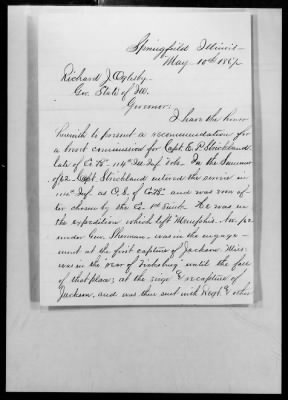 Springfield Illinois
May 10th 1867
Richard J. Oglesby
Gov. State of Ill.
Governor.
I have the honor
herewith to present a recommendation for
a brevet commission for Capt E. P. Strickland
late of Co. B. 114th Ills. Inf. Vols. In the Summer
of 62 Capt. Strickland entered the service in
114th Inf. as O.S. of Co. B. and was soon af-
ter chosen by the Co. 1st Lieut. He was in
the expedition which left Memphis
under Gen. Sherman. was in the engage-
ment at the first capture of Jackson Miss.
was in the "rear of Vicksburg" until the fall
of that place; at the siege & recapture of
Jackson, and was then sent with Regt. &